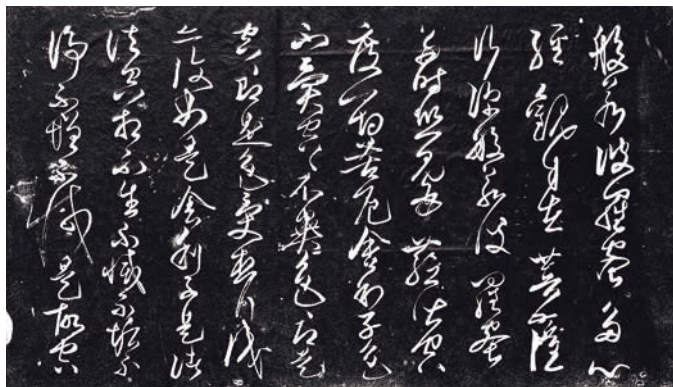 般若波羅蜜多心
經觀自在菩薩
行深般若波羅蜜
多時照見五蘊皆空
度一切苦厄舍利子色
不異空空不異色色即是
空空即是色受想行識
亦復如是舍利子是諸
法空相不生不滅不垢不
淨不增不減是故空